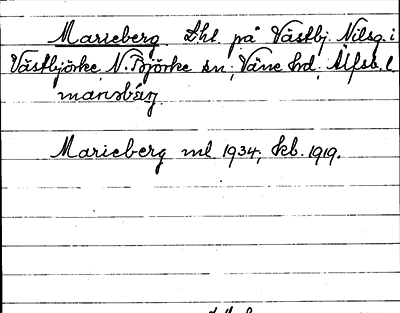 Marieberg Lht. på Västbj. Nilsg. i
Västbjörke, N. Björke sn, Väne hd, Älfsb. l.
marıəbárj
Marieberg ml 1934, kb. 1919.